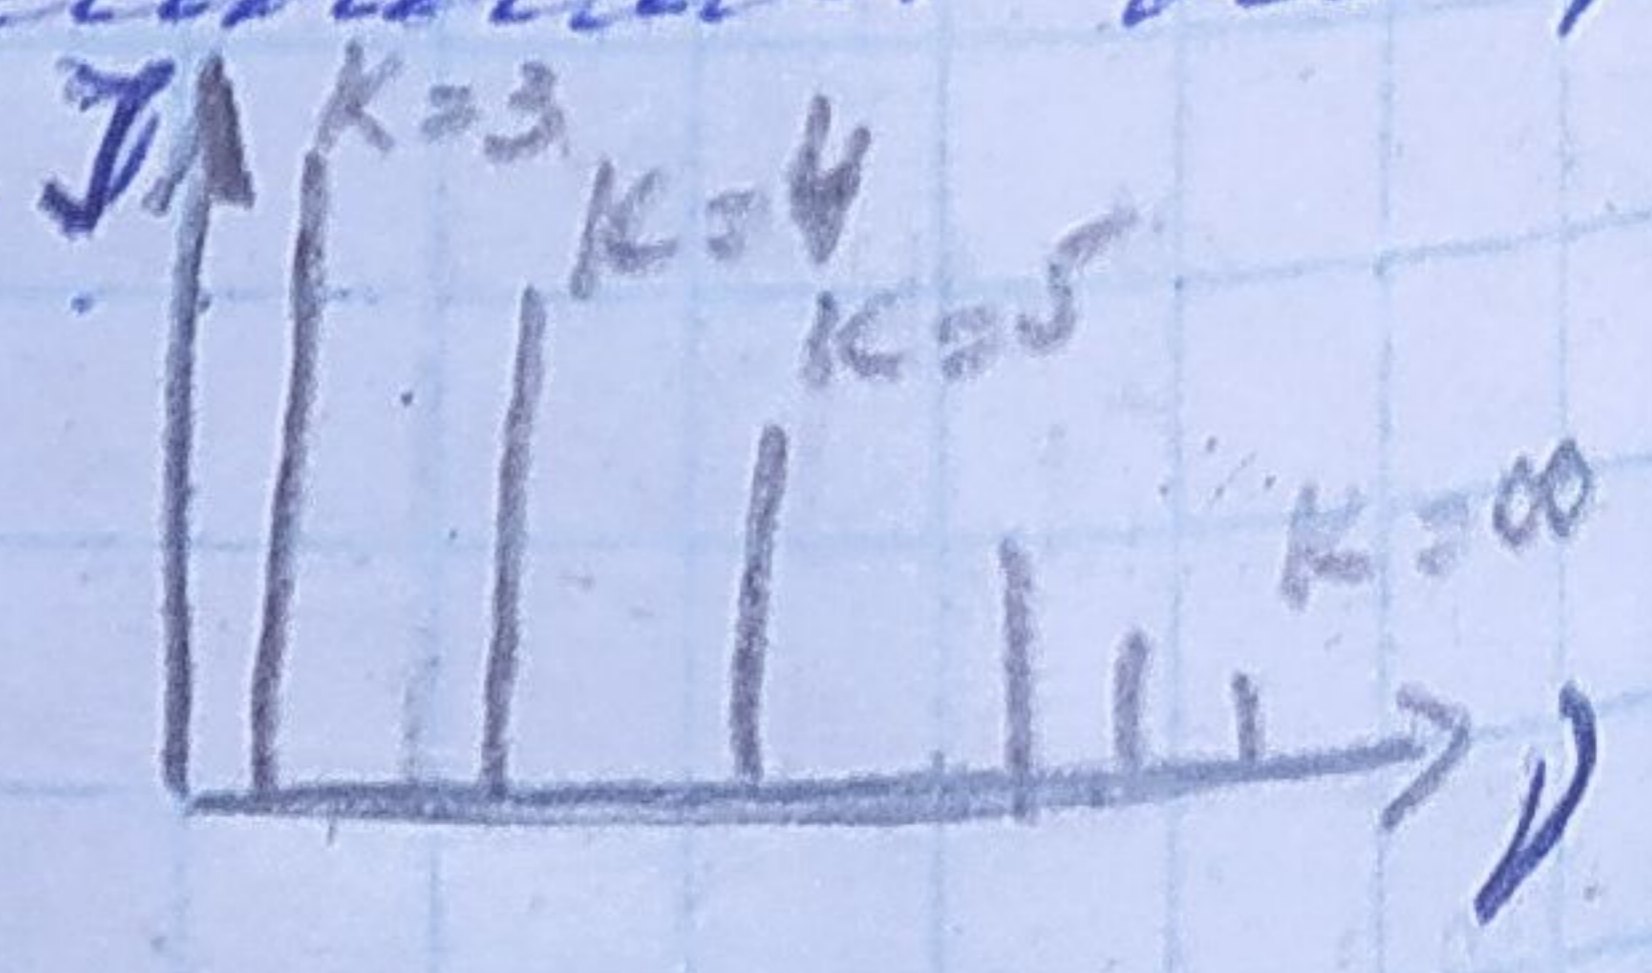 J
K=3
K=4
K=5
K=∞
ν